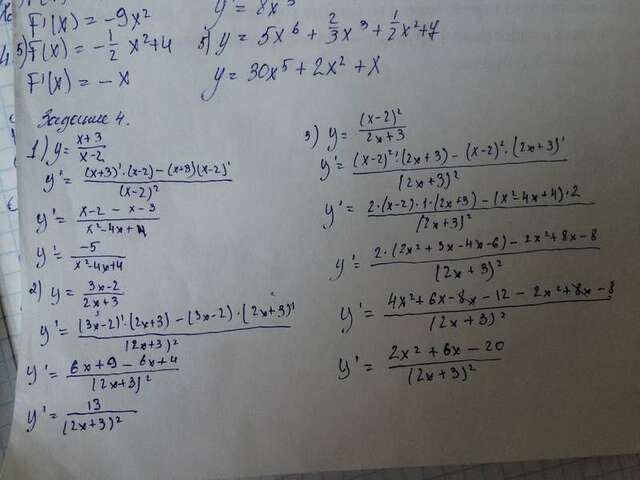 F'(x) = -9x²
5) f(x) = -1/2 x² + 4
F'(x) = -x
y' = 8x³
3) y = 5x⁶ + 2/3 x³ + 1/2 x² + 4
y = 30x⁵ + 2x² + x
Задание 4.
1) y = (x+3)/(x-2)
y' = ((x+3)'·(x-2) - (x+3)(x-2)')/(x-2)²
y' = (x-2-x-3)/(x²-4x+4)
y' = -5/(x²-4x+4)
2) y = (3x-2)/(2x+3)
y' = ((3x-2)'·(2x+3) - (3x-2)·(2x+3)')/(2x+3)²
y' = (6x+9-6x+4)/(2x+3)²
y' = 13/(2x+3)²
3) y = (x-2)²/(2x+3)
y' = ((x-2)²'·(2x+3) - (x-2)²·(2x+3)')/(2x+3)²
y' = (2·(x-2)·1·(2x+3) - (x²-4x+4)·2)/(2x+3)²
y' = (2·(2x²+3x-4x-6) - 2x²+8x-8)/(2x+3)²
y' = (4x²+6x-8x-12-2x²+8x-8)/(2x+3)²
y' = (2x²+6x-20)/(2x+3)²